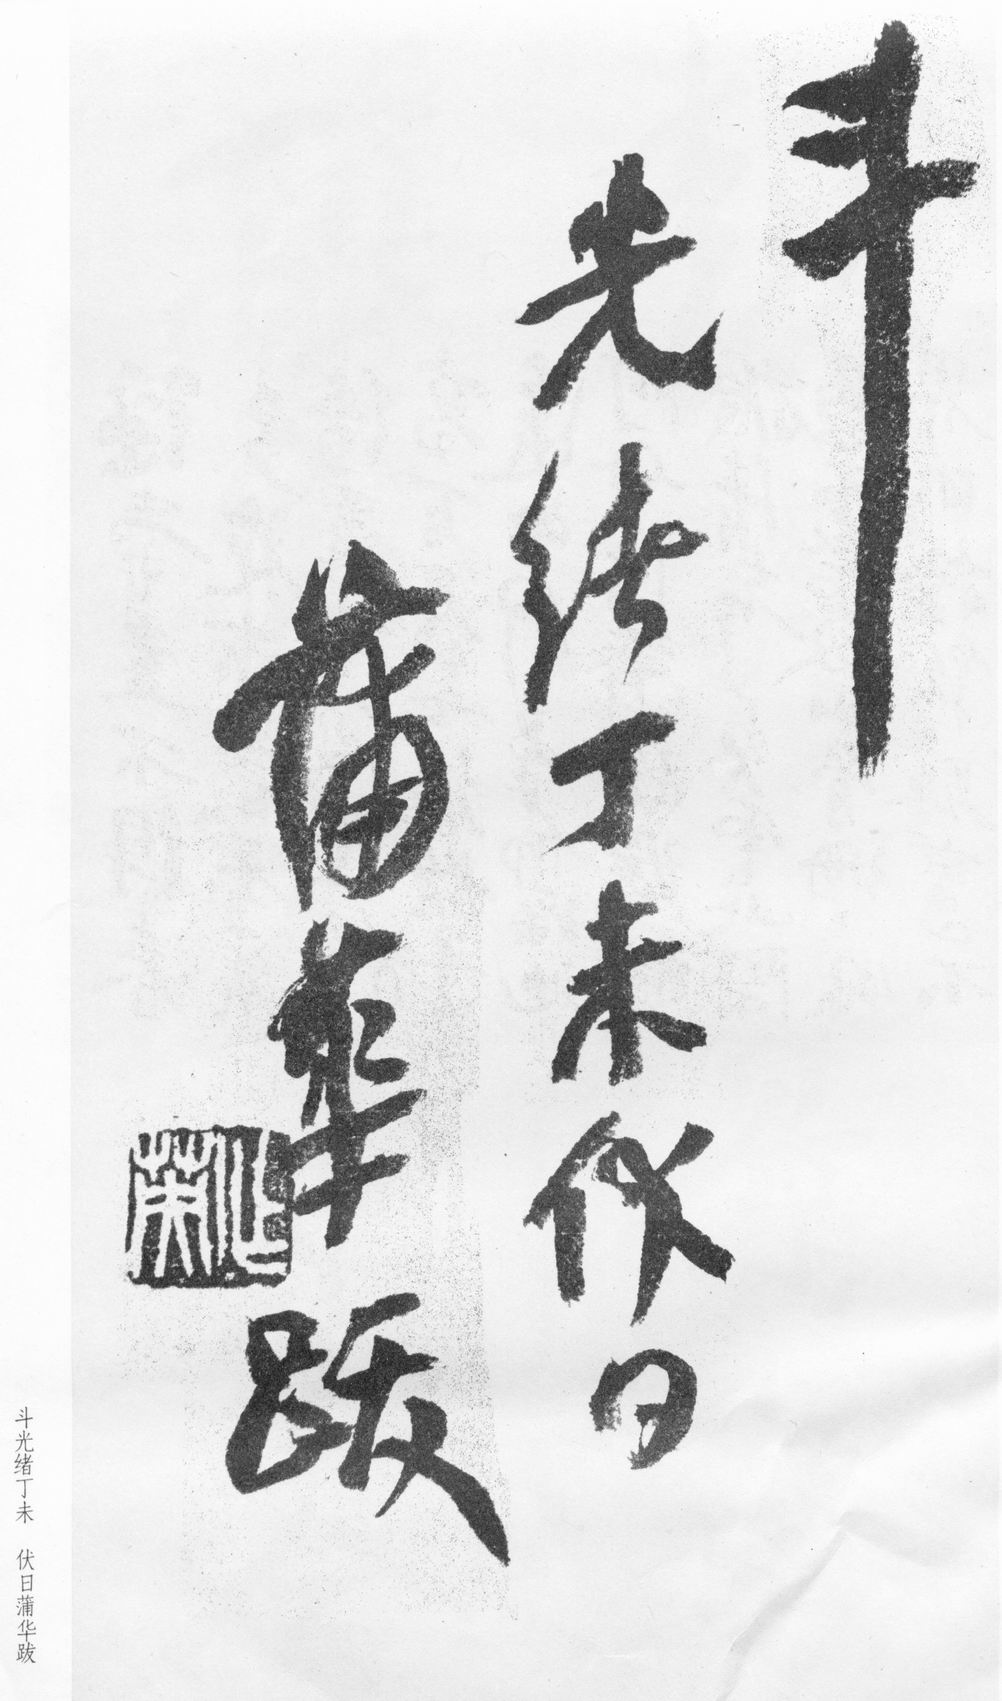 斗
光緒丁未伏日
蒲華跋
作英
斗光绪丁未　伏日蒲华跋